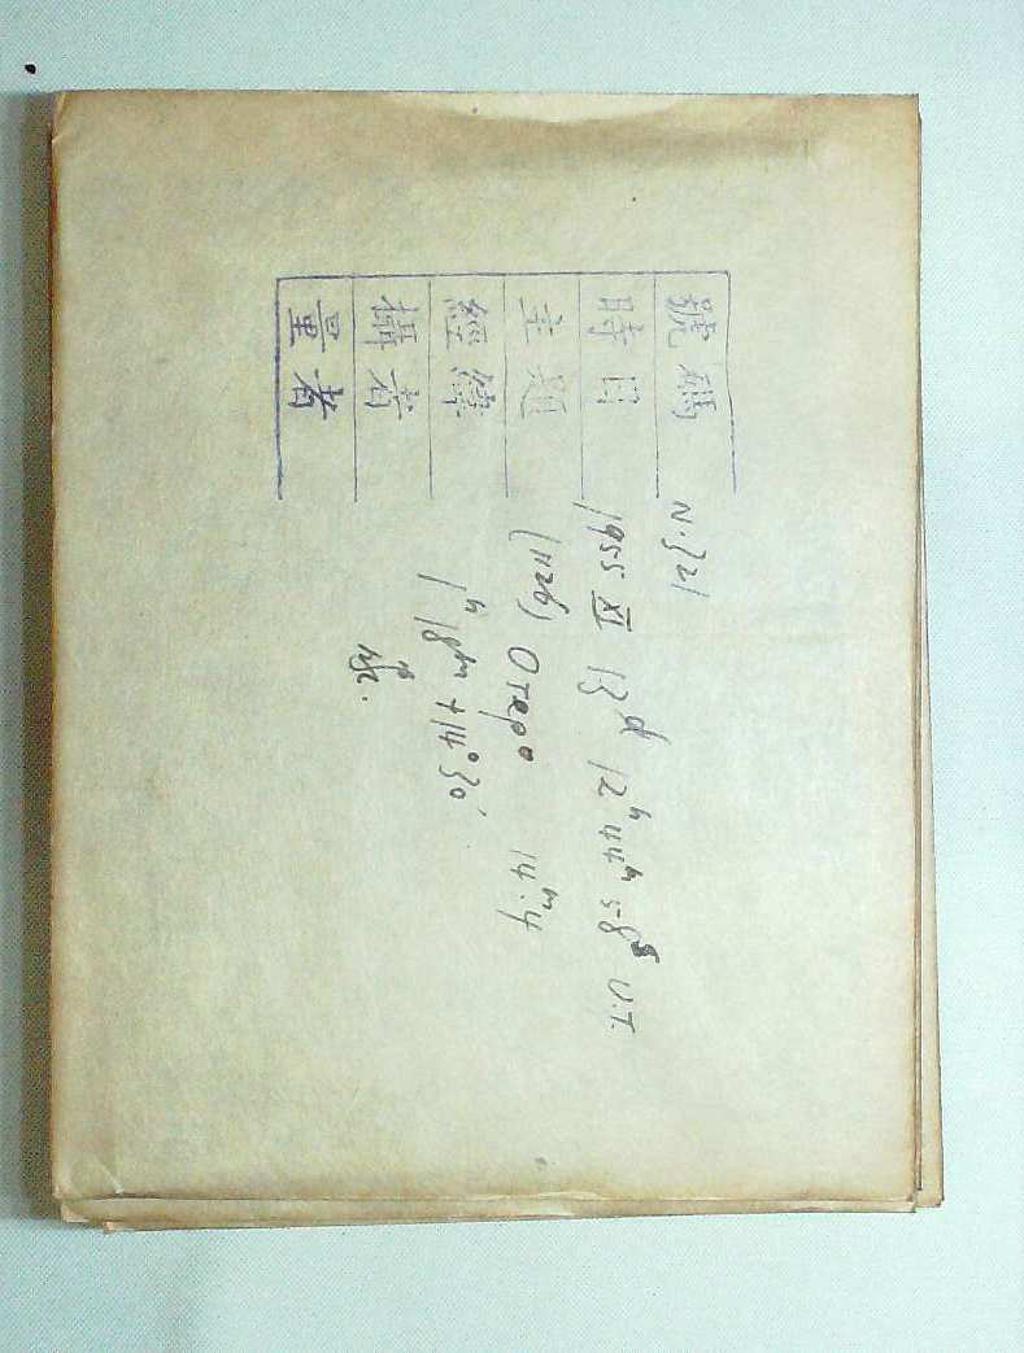 號碼 N.321
時日 1955 XI 13ᵈ 12ʰ44ᵐ58ˢ U.T.
主題 (1126) Otero 14ᵐ.4
經緯 1ʰ18ᵐ +14°30′
攝者
量者